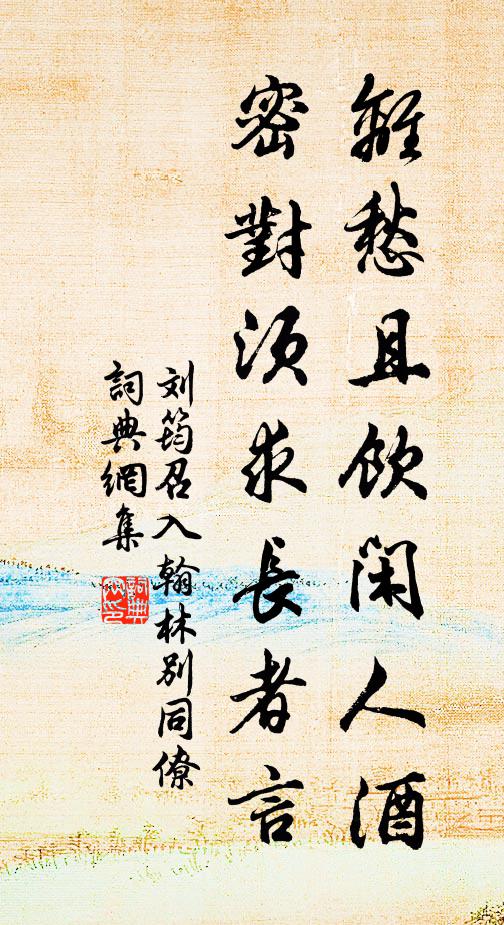 離愁且飲闲人酒
密對須求長者言
刘筠召入翰林別同僚
詞典網集